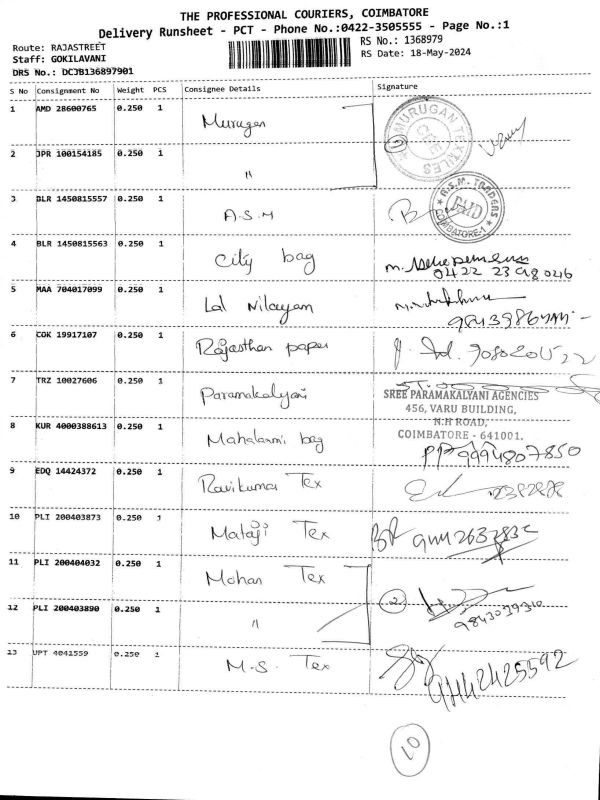 THE PROFESSIONAL COURIERS, COIMBATORE
Delivery Runsheet - PCT - Phone No.:0422-3505555 - Page No.:1
Route: RAJASTREET
RS No.: 1368979
Staff: GOKILAVANI
RS Date: 18-May-2024
DRS No.: DCJB136897901
S No Consignment No Weight PCS Consignee Details Signature
1 AMD 28600765 0.250 1 Murugan
MURUGAN TEXTILES
CBE
2
2 JPR 100154185 0.250 1 "
3 BLR 1450815557 0.250 1 A.S.M
R.S.M. TRADERS
COIMBATORE-1
4 BLR 1450815563 0.250 1 City bag
5 MAA 704017099 0.250 1 Lal Nilayam
6 COK 19917107 0.250 1 Rajasthan paper
7 TRZ 10027606 0.250 1 Paramakalyani
SREE PARAMAKALYANI AGENCIES
456, VARU BUILDING,
N.H ROAD,
COIMBATORE - 641001.
8 KUR 4000388613 0.250 1 Mahalaxmi bag
PP 9994807850
9 EDQ 14424372 0.250 1 Ravikumar Tex
10 PLI 200403873 0.250 1 Mataji Tex
11 PLI 200404032 0.250 1 Mohan Tex
2
12 PLI 200403890 0.250 1 "
13 UPT 4041559 0.250 1 M.S. Tex
9442425592
10